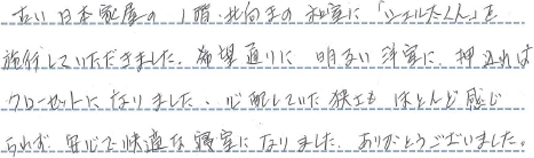 古い日本家屋の1階・北向きの和室に「シェルたくん」を
施行していただきました。希望通りに明るい洋室に、押入れは
クローゼットになりました。心配していた狭さも ほとんど感じ
られず、安心で快適な寝室になりました。ありがとうございました。